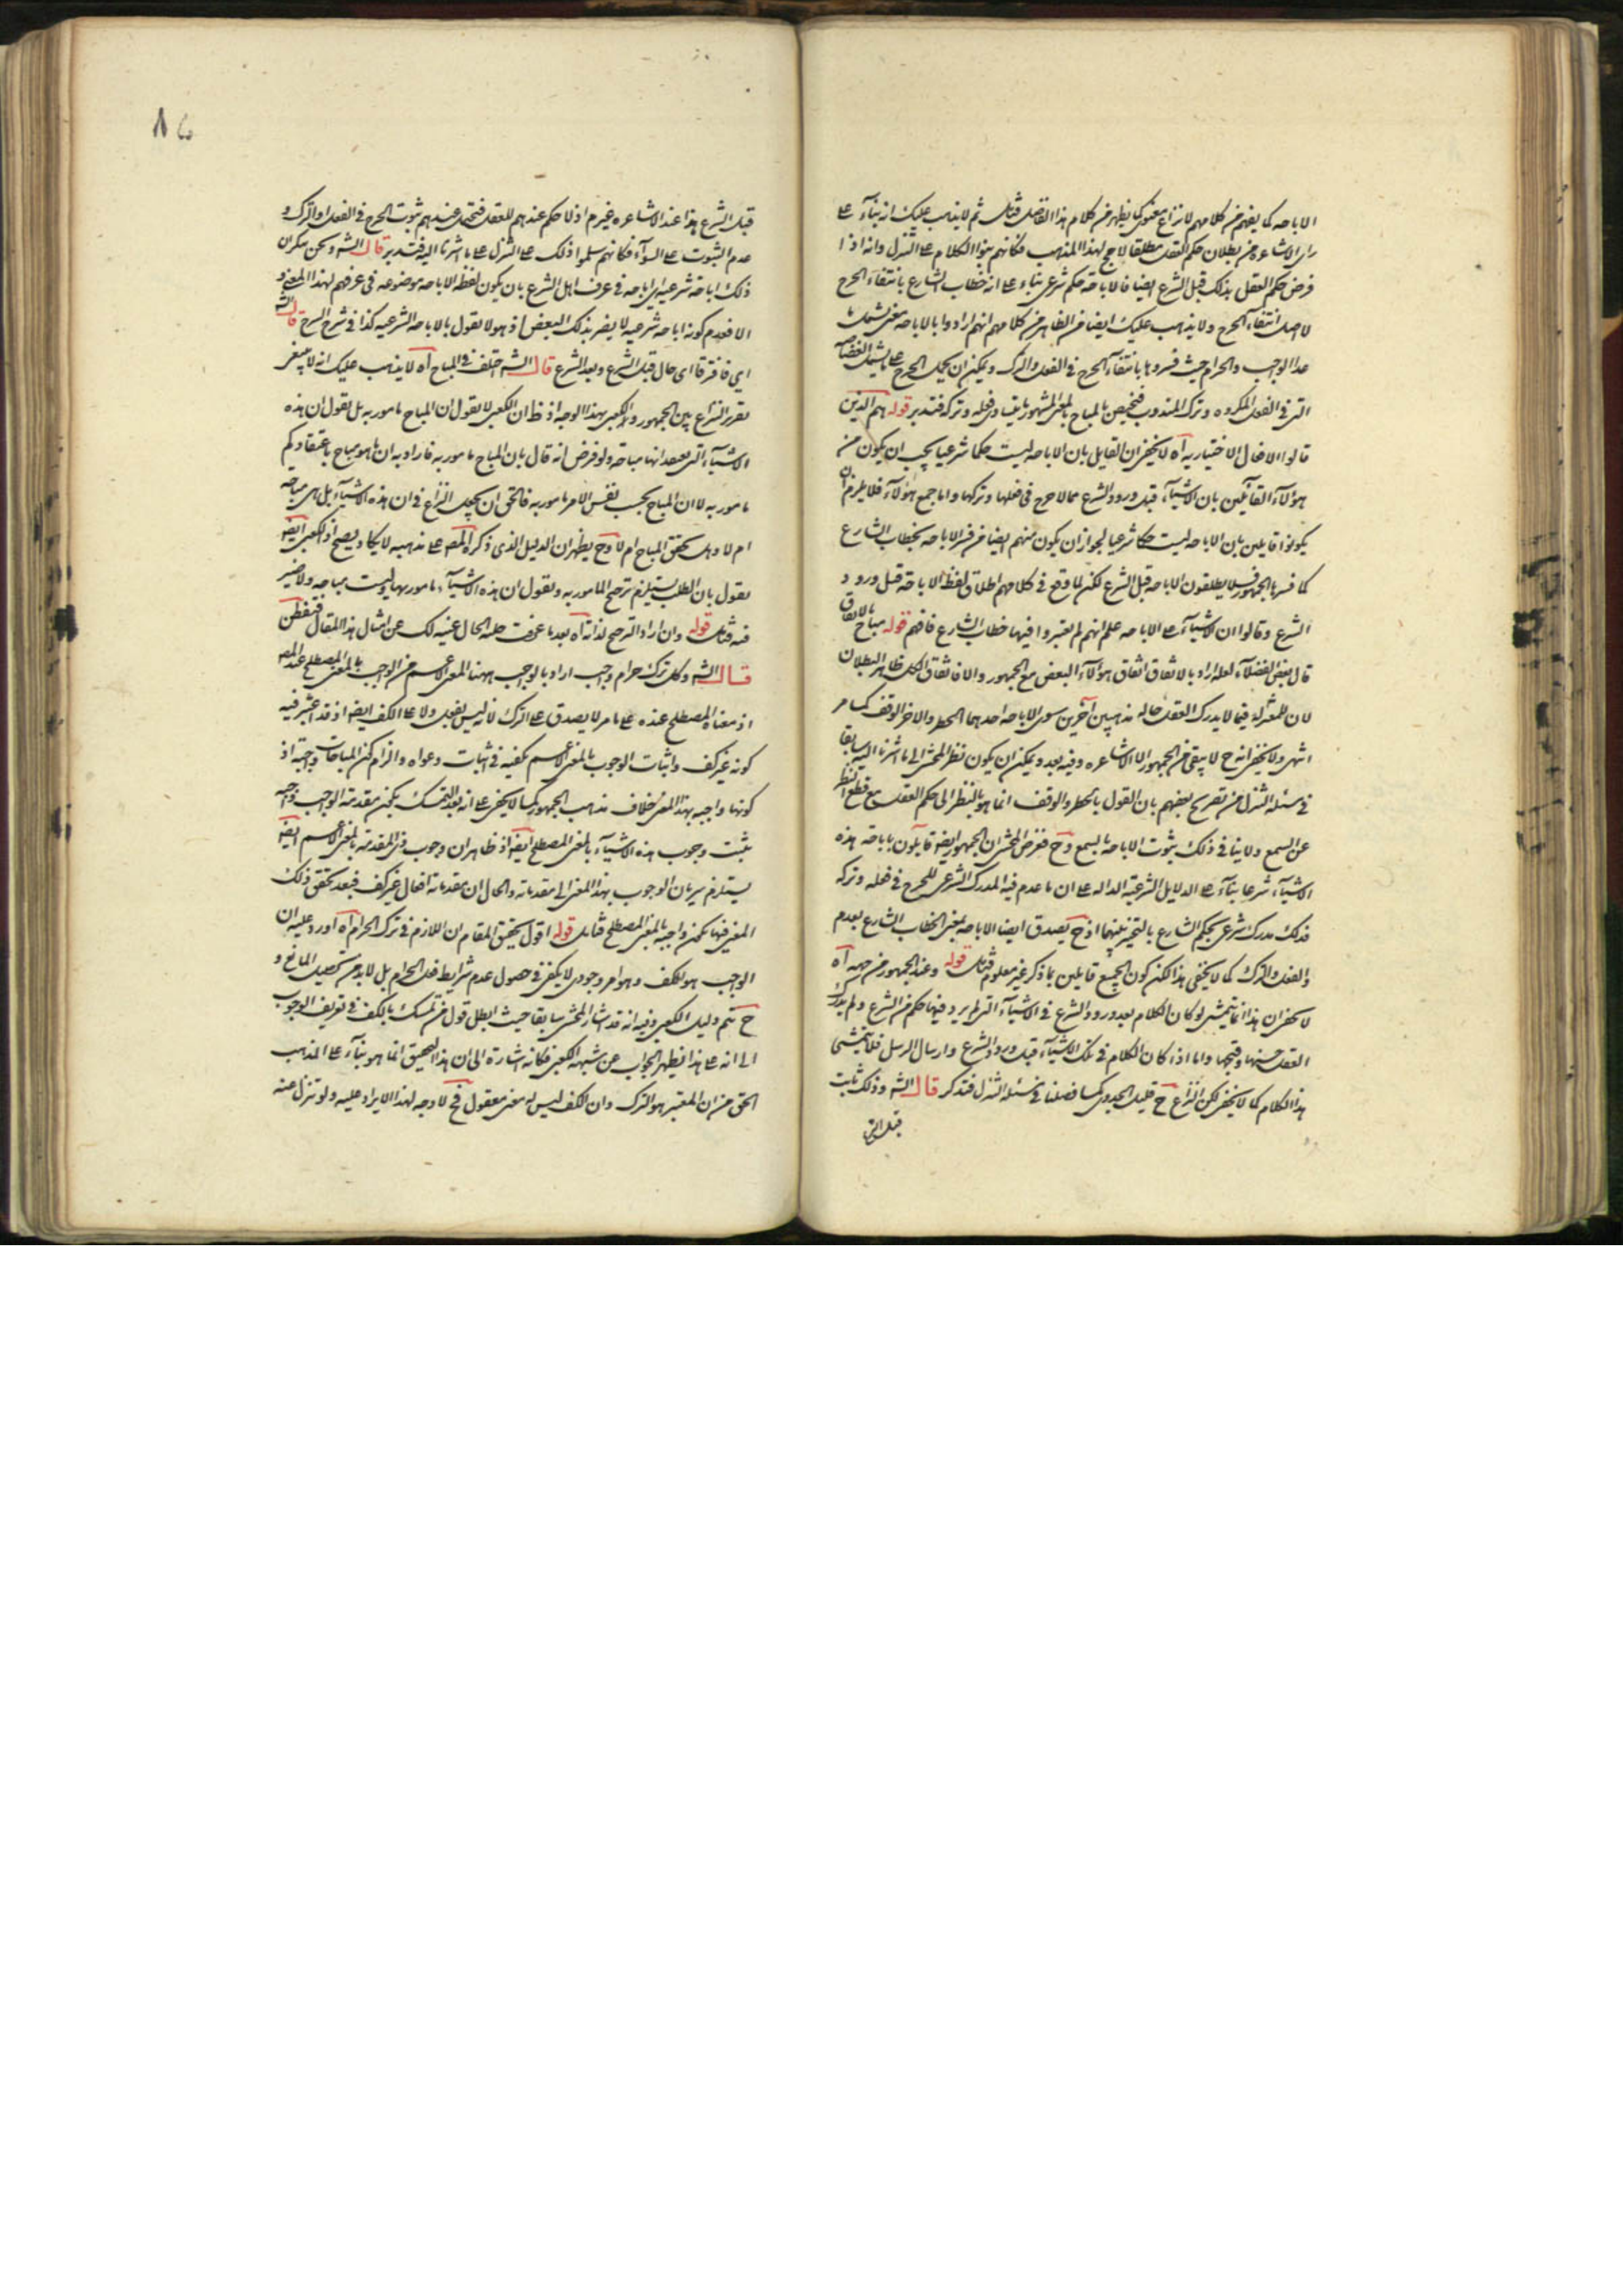 الاباحه كما يفهم من كلامهم لا نزاع معنوي كما يظهر من كلام هذا الفاضل فتامل ثم لا يذهب عليك انه بناء على
راى الاشاعره من بطلان حكم العقل مطلقا لا جرح لهذا المذهب فكانهم بنوا الكلام على التنزل وانه اذا
فرض حكم العقل بذلك قبل الشرع ايضا فالاباحة حكم شرعى بناء على انه خطاب الشارع بانتفاء الحرج
لا اصل انتفاء الحرج ولا يذهب عليك ايضا من الظاهر من كلامهم انهم ارادوا بالاباحه معنى يشمل ما
عدا الواجب والحرام حيث فسروها بانتفاء الحرج فى الفعل والترك ويمكن ان يحمل الحرج على ما يشمل
التى فى الفعل المكروه وترك المندوب فيختص بالمباح بالمعنى المشهور ما يتساوى فعله وتركه فتدبر قوله هم الذين
قالوا الافعال الاختياريه آه لا يخفى ان القايل بان الاباحه ليست حكما شرعيا يجب ان يكون من
هؤلاء القائلين بان الاشياء قبل ورود الشرع مما لا حرج فى فعلها وتركها واما جمع هؤلاء فلا يلزم ان
يكونوا قايلين بان الاباحه ليست حكما شرعيا لجواز ان يكون منهم ايضا من فسر الاباحه بخطاب الشارع
كما فسر به الجمهور فلا يطلقون الاباحه قبل الشرع لكن لما وقع فى كلامهم اطلاق لفظ الاباحة قبل ورود
الشرع وقالوا ان الاشياء على الاباحه علم انهم لم يعتبروا فيها خطاب الشارع فافهم قوله مباح بالاتفاق
قال بعض الفضلاء لعله اراد بالاتفاق اتفاق هؤلاء البعض مع الجمهور والا فاتفاق الكل ظاهر البطلان
لان للمعتزلة فيما لا يدرك العقل حاله مذهبين آخرين سوى الاباحه احدهما الحظر والاخر الوقف كما مر
انتهى ولا يخفى انه ح لا يبقى من الجمهور الا الاشاعره وفيه بعد ويمكن ان يكون نظر المحشى الى ما اشرنا اليه سابقا
فى مسئلة التنزل من تصريح بعضهم بان القول بالحظر والوقف انما هو بالنظر الى حكم العقل مع قطع النظر
عن السمع ولا ينافى ذلك ثبوت الاباحة بالسمع وح فغرض المحشى ان الجمهور ايضا قايلون باباحة هذه
الاشياء شرعا بناء على الدلايل الشرعية الداله على ان ما عدم فيه المدرك الشرعى للحرج فى فعله وتركه
فذلك مدرك شرعى بحكم الشارع بالتخيير بينهما اذ ح يصدق ايضا الاباحة بمعنى الخطاب الشارع بعدم
والفعل والترك كما لا يخفى هذا لكن كون الجميع قايلين بما ذكر غير معلوم فتامل قوله وعند الجمهور من جهه آه
لا يخفى ان هذا انما يتمشى لو كان الكلام بعد ورود الشرع فى الاشياء التى لم يرد فيها حكم من الشرع ولم يدرك
العقل حسنها وقبحها واما اذا كان الكلام فى تلك الاشياء قبل ورود الشرع وارسال الرسل فلا يتمشى
هذا الكلام كما لا يخفى لكن النزاع ح قليل الجدوى كما فصلنا فى مسئلة التنزل فتذكر قال الشه وذلك ثابت
قبل الش
قبل الشرع هذا عند الاشاعره وغيرهم اذ لا حكم عندهم للعقل فيحتمل عندهم ثبوت الحرج فى الفعل او الترك و
عدم الثبوت على السواء فكانهم سلموا ذلك على التنزل على ما اشرنا اليه فتدبر قال الشه ونحن ننكر ان
ذلك اباحة شرعيه اى اباحه فى عرف اهل الشرع بان يكون لفظ الاباحه موضوعه فى عرفهم لهذا المعنى و
الا فعدم كونه اباحه شرعيه لا يضر بذلك البعض اذ هو لا يقول بالاباحه الشرعيه كذا فى شرح الشرح قال الشه
اى فافترقا اى حال قبل الشرع وبعد الشرع قال الشه اختلف فى المباح آه لا يذهب عليك انه لا ينبغى
تقرير النزاع بين الجمهور والكعبى بهذا الوجه اذ ظ ان الكعبى لا يقول ان المباح مامور به بل يقول ان هذه
الاشياء التى نعتقد انها مباحة ولو فرض انه قال بان المباح مامور به فاراد به ان ما هو مباح باعتقادكم
مامور به لا ان المباح بحسب نفس الامر مامور به فالحق ان يجعل النزاع فى ان هذه الاشياء بل هى مباحه
ام لا وهل تحقق المباح ام لا وح يظهر ان الدليل الذى ذكره المصه على مذهبه لا يكاد يصح اذ الكعبى ايضه
يقول بان الطلب يستلزم ترجح المامور به ويقول ان هذه الاشياء مامور بها وليست مباحه ولا ضير
فيه فتامل قوله وان اراد الترجح لذاته آه بعد ما عرفت حقيقة الحال غنيه لك عن امثال هذا المقال فتفطن
قال الشه وكل ترك حرام واجب اراد بالواجب ههنا المعنى الاعم من الواجب بالمعنى المصطلح عند المصه
اذ معناه المصطلح عنده على ما مر لا يصدق على الترك لانه ليس بفعل ولا على الكف ايضه اذ قد اعتبر فيه
كونه غير كف واثبات الوجوب بالمعنى الاعم يكفيه فى اثبات دعواه والزام كن المباحات واجبة اذ
كونها واجبه بهذا المعنى خلاف مذهب الجمهور كما لا يخفى على انه بعد التمسك يكون مقدمة الواجب واجبه
يثبت وجوب هذه الاشياء بالمعنى المصطلح ايضه اذ ظاهر ان وجوب ذى المقدمة بالمعنى الاعم ايضه
يستلزم سريان الوجوب بهذا المعنى الى مقدماته والحال ان مقدماته افعال غير كف فبعد تحقق ذلك
المعنى فيها يكون واجبه بالمعنى المصطلح فتامل قوله اقول تحقيق المقام ان اللازم فى ترك الحرام آه اورد عليه ان
الواجب هو الكف وهو امر وجودى لا يكفى فى حصول عدم شرايط فعل الحرام بل لا بد من تحصيل المانع و
ح يتم دليل الكعبى وفيه انه قد اشار المحشى سابقا حيث ابطل قول من تمسك بالكف فى تعريف الوجوب
الى انه على هذا يظهر الجواب عن شبهة الكعبى فكانه اشارة الى ان هذا التحقيق انما هو بناء على المذهب
الحق من ان المعتبر هو الترك وان الكف ليس له معنى معقول فح لا وجه لهذا الايراد عليه ولو تنزل عنه